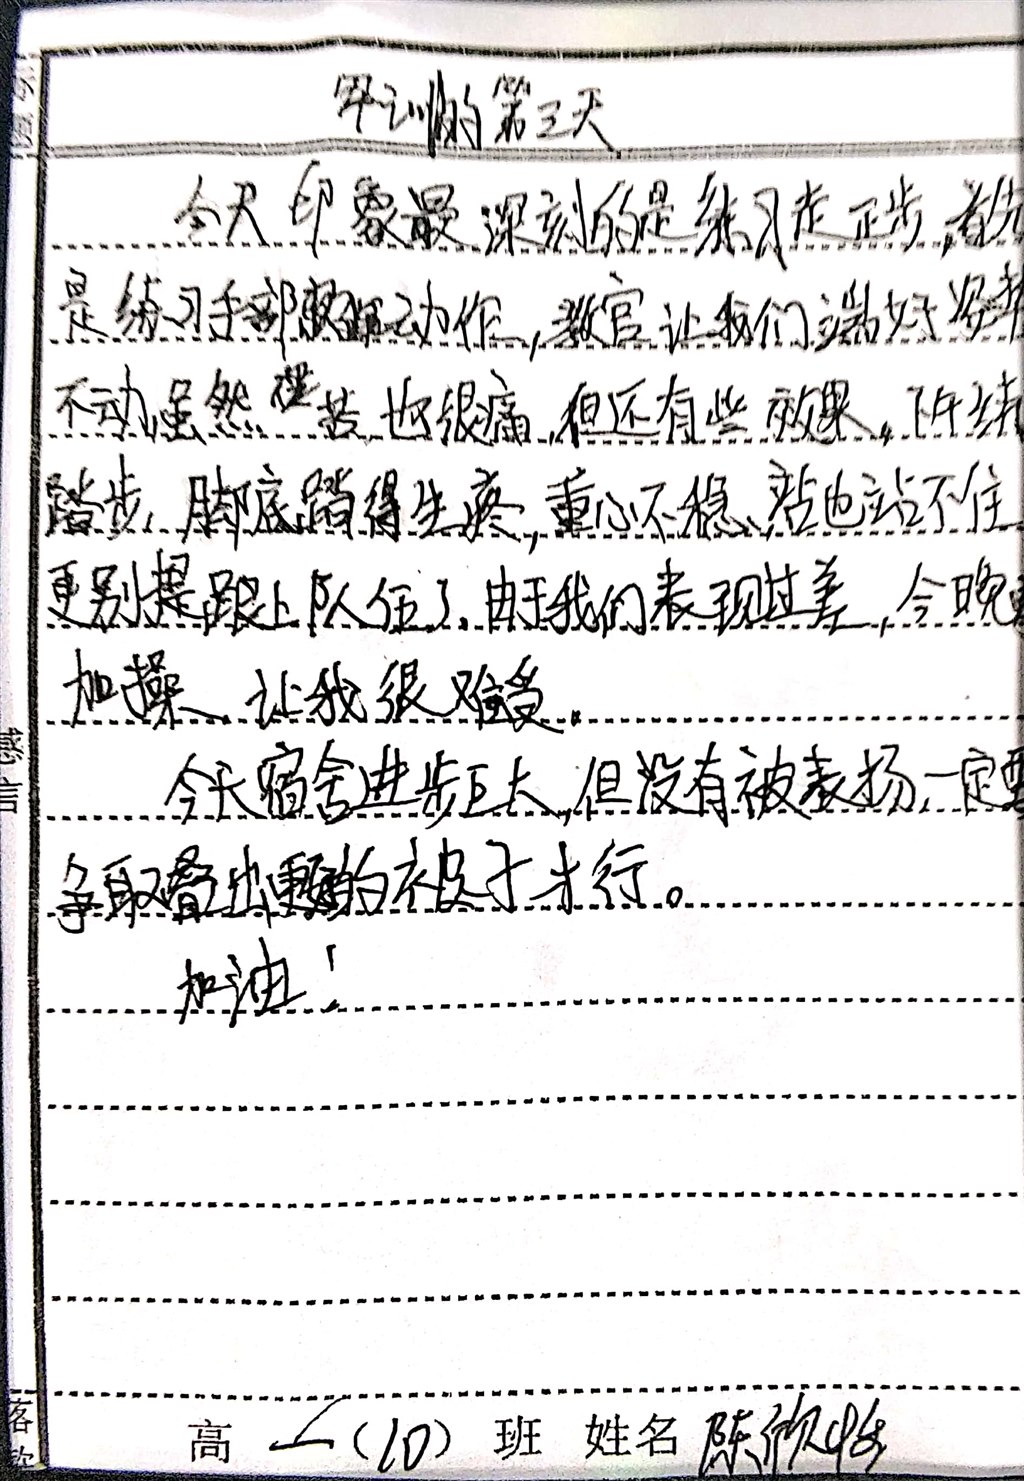 军训的第三天
今天印象最深刻的是练习走正步,首先
是练习手部动作,教官让我们端好姿势
不动,虽然很苦也很痛,但还有些效果,下午练
踏步,脚底踏得生疼,重心不稳,站也站不住
更别提跟上队伍了,由于我们表现过差,今晚要
加操,让我很难受。
今天宿舍进步巨大,但没有被表扬,一定要
争取叠出更好的被子才行。
加油!
感
言
高一(10)班 姓名 陈欣怡
落
款